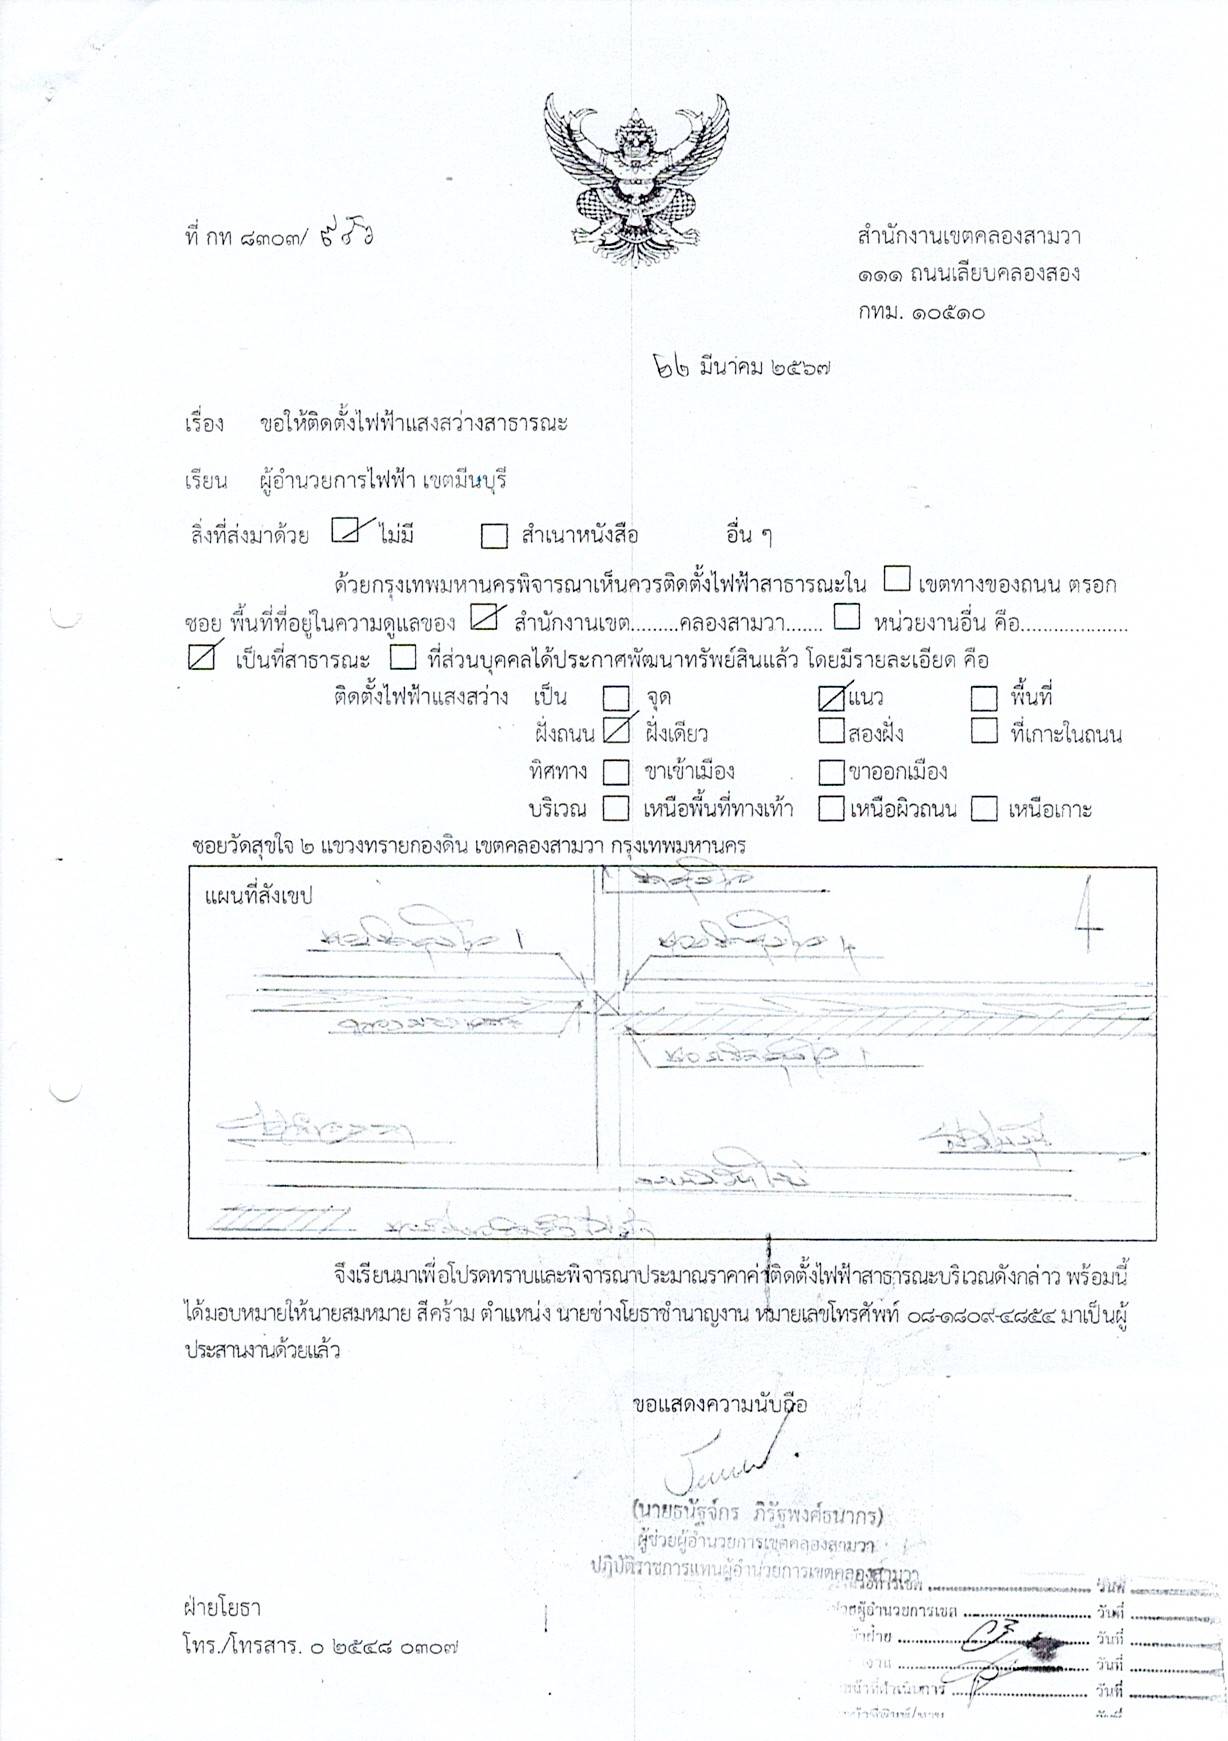 ที่ กท ๘๓๐๓/
สำนักงานเขตคลองสามวา
๑๑๑ ถนนเลียบคลองสอง
กทม. ๑๐๕๑๐
๒๒ มีนาคม ๒๕๖๗
เรื่อง ขอให้ติดตั้งไฟฟ้าแสงสว่างสาธารณะ
เรียน ผู้อำนวยการไฟฟ้า เขตมีนบุรี
สิ่งที่ส่งมาด้วย ไม่มี สำเนาหนังสือ อื่น ๆ
ด้วยกรุงเทพมหานครพิจารณาเห็นควรติดตั้งไฟฟ้าสาธารณะใน เขตทางของถนน ตรอก
ซอย พื้นที่ที่อยู่ในความดูแลของ สำนักงานเขต.........คลองสามวา....... หน่วยงานอื่น คือ....................
เป็นที่สาธารณะ ที่ส่วนบุคคลได้ประกาศพัฒนาทรัพย์สินแล้ว โดยมีรายละเอียด คือ
ติดตั้งไฟฟ้าแสงสว่าง เป็น จุด แนว พื้นที่
ฝั่งถนน ฝั่งเดียว สองฝั่ง ที่เกาะในถนน
ทิศทาง ขาเข้าเมือง ขาออกเมือง
บริเวณ เหนือพื้นที่ทางเท้า เหนือผิวถนน เหนือเกาะ
ซอยวัดสุขใจ ๒ แขวงทรายกองดิน เขตคลองสามวา กรุงเทพมหานคร
แผนที่สังเขป
จึงเรียนมาเพื่อโปรดทราบและพิจารณาประมาณราคาค่าติดตั้งไฟฟ้าสาธารณะบริเวณดังกล่าว พร้อมนี้
ได้มอบหมายให้นายสมหมาย สีคร้าม ตำแหน่ง นายช่างโยธาชำนาญงาน หมายเลขโทรศัพท์ ๐๘-๑๘๐๙-๔๘๕๔ มาเป็นผู้
ประสานงานด้วยแล้ว
ขอแสดงความนับถือ
(นายธนัฐจ์กร ภิรัฐพงศ์ธนากร)
ผู้ช่วยผู้อำนวยการเขตคลองสามวา
ปฏิบัติราชการแทนผู้อำนวยการเขตคลองสามวา
ฝ่ายโยธา
โทร./โทรสาร. ๐ ๒๕๔๘ ๐๓๐๗
วันที่
ผู้อำนวยการเขต วันที่
วันที่
วันที่
วันที่